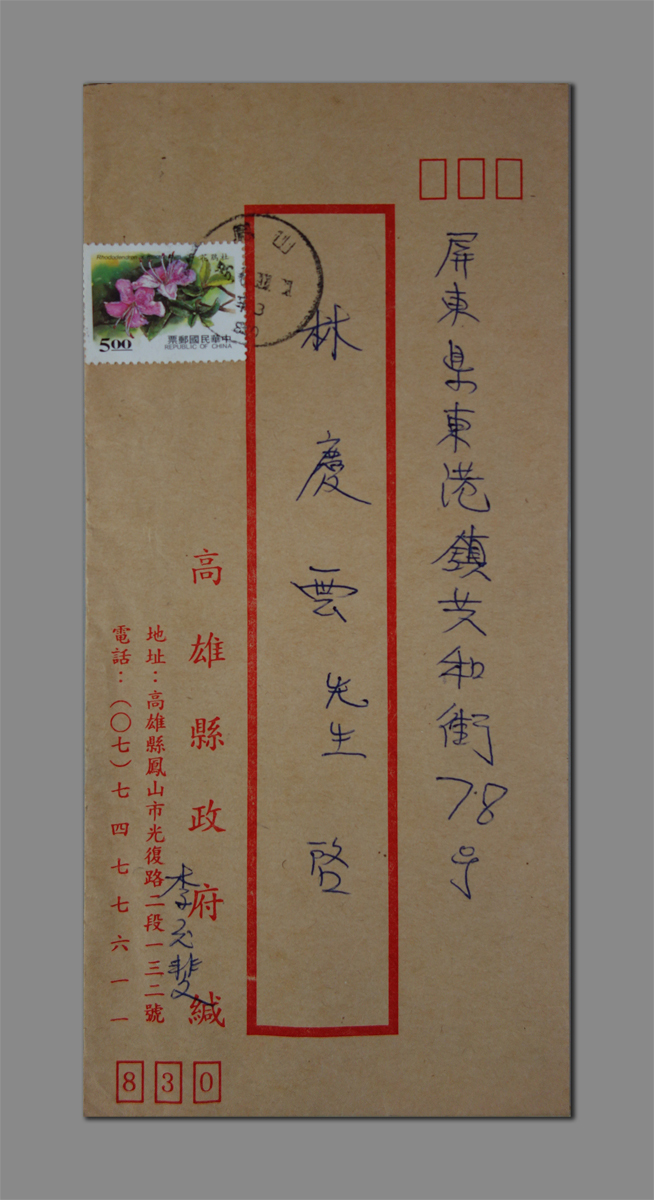 屏東県東港鎮共和街78号
林慶雲先生 啓
鳳山
5.00
中華民國郵票
REPUBLIC OF CHINA
高雄縣政府緘
李元斐
地址：高雄縣鳳山市光復路二段一三二號
電話：（〇七）七四七七六一一
830